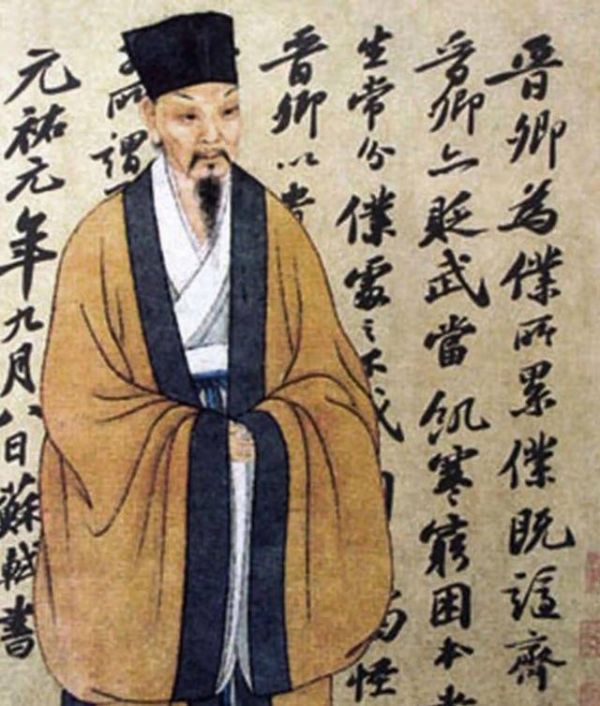 晉卿為僕所累僕既謫齊
晉卿亦貶武當飢寒窮困本書
生常分僕處之不戚怪
晉卿以貴
所謂
元祐元年九月八日蘇軾書